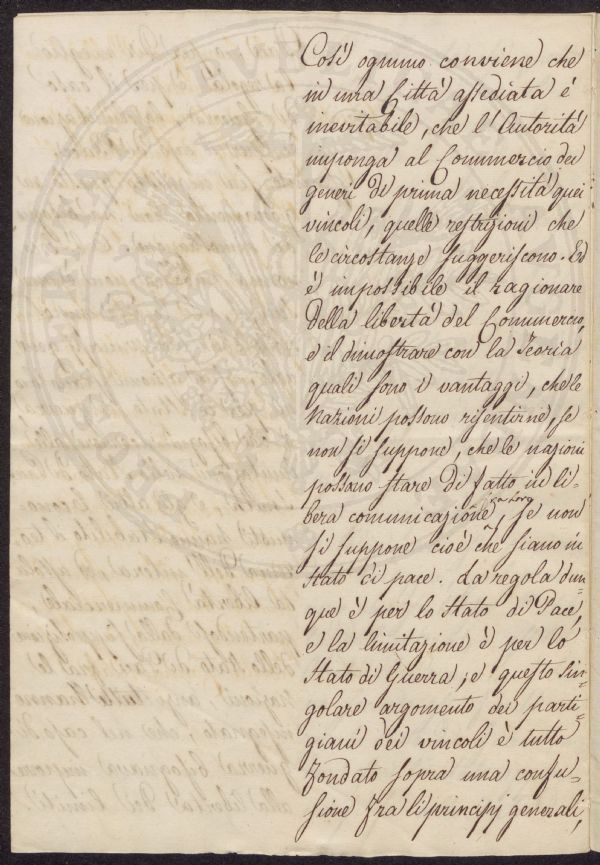 Così ognuno conviene che
in una Città assediata é
inevitabile, che l'Autorità
imponga al Commercio dei
generi di prima necessità quei
vincoli, quelle restrizioni che
le circostanze suggeriscono. Ed
é impossibile il ragionare
della libertà del Commercio,
e il dimostrare con la Teoria
quali sono i vantaggi, che le
Nazioni possono risentirne, se
non si suppone, che le nazioni
possano stare di fatto in li-
bera comunicazione fra loro, se non
si suppone cioé che siano in
stato di pace. La regola dun-
que é per lo stato di Pace,
e la limitazione é per lo
stato di Guerra; e questo sin-
golare argomento dei parti-
giani dei vincoli è tutto
fondato sopra una confu-
sione fra li principj generali,